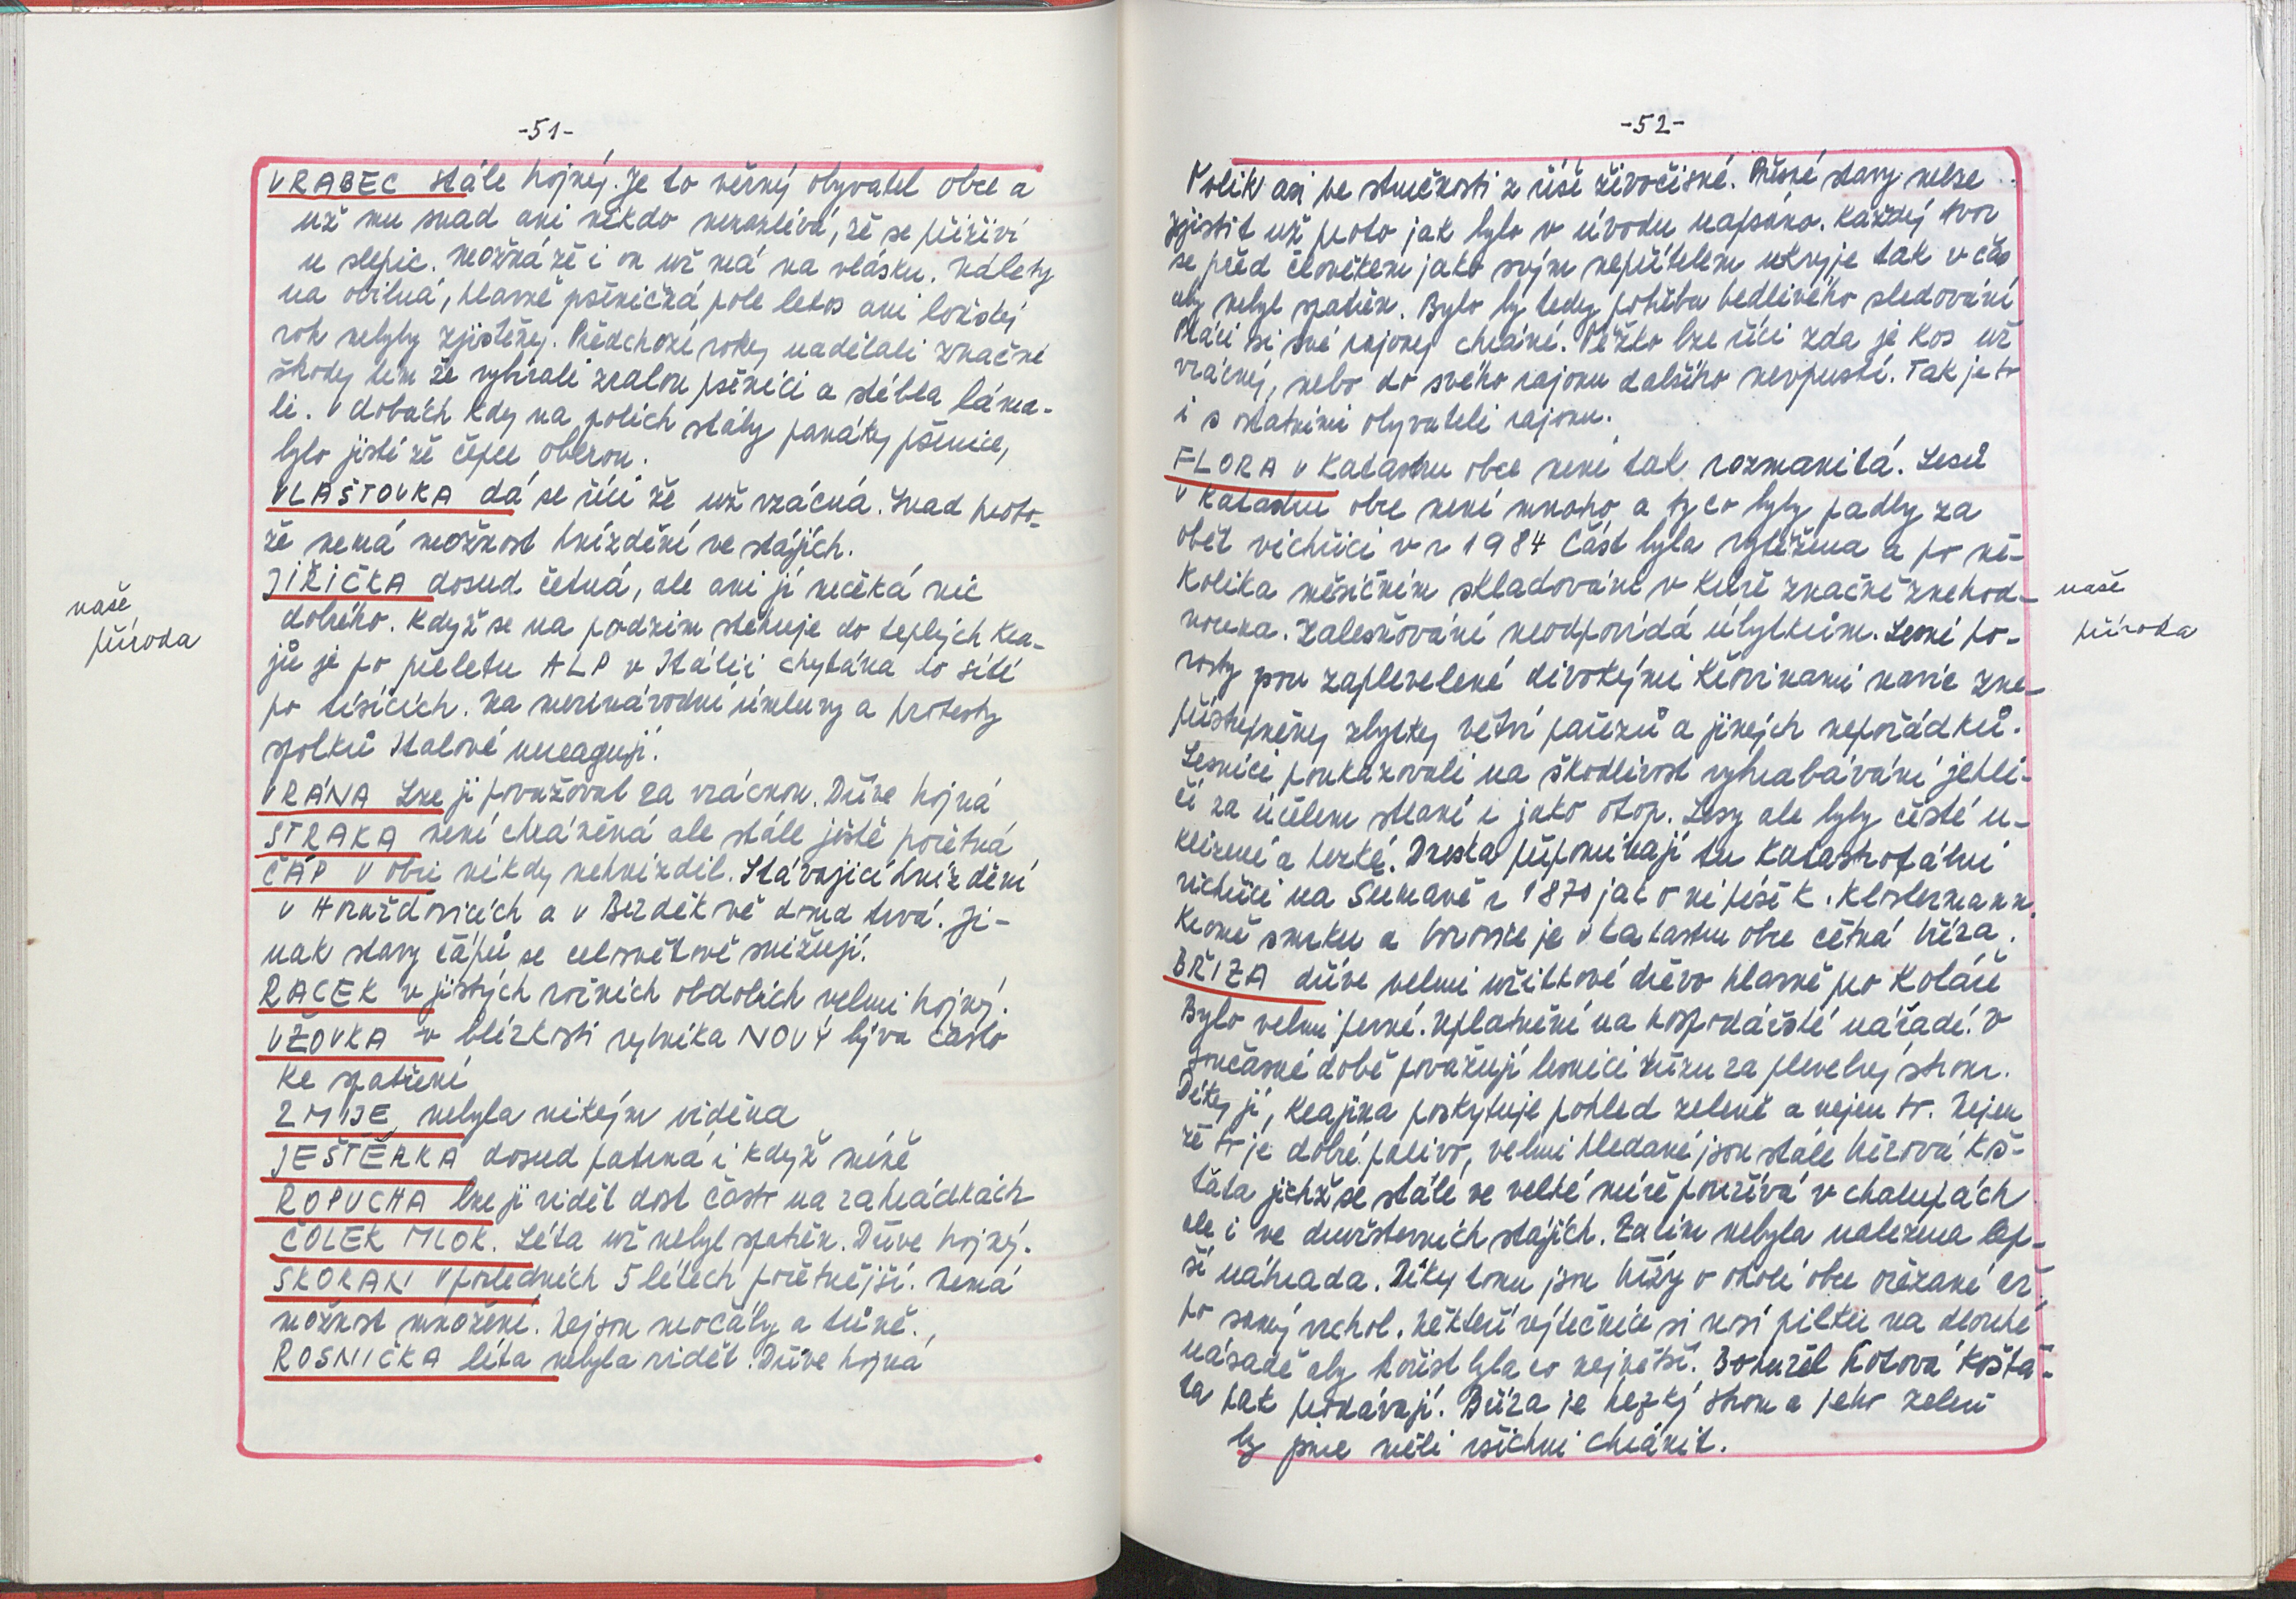 -51-
VRABEC stále hojný. Je to věrný obyvatel obce a
už mu snad ani nikdo nezazlívá, že se přiživí
u slepic. Možná že i on už má na vlásku. Nálety
na obilná, hlavně pšeničná pole letos ani loňský
rok nebyly zjištěny. Předchozí roky nadělali značné
škody tím že vybírali zralou pšenici a stébla láma-
li. V dobách kdy na polích stály panáky pšenice,
bylo jisté že čepce oberou.
VLAŠTOVKA dá se říci že už vzácná. Snad proto-
že nemá možnost hnízdění ve stájích.
JIŘIČKA dosud četná, ale ani jí nečeká nic
dobrého. Když se na podzim stěhuje do teplých kra-
jů je po přeletu ALP v Itálii chytána do sítí
po tisících. Na mezinárodní úmluvy a protesty
spolků Italové nereagují.
VRÁNA Lze ji považovat za vzácnou. Dříve hojná
STRAKA není chráněná ale stále ještě početná
ČÁP V obci nikdy nehnízdil. Stávající hnízdění
v Horažďovicích a v Bezděkově dosud trvá. Ji-
nak stavy čápů se celosvětově snižují.
RACEK v jistých ročních obdobích velmi hojný.
UŽOVKA v blízkosti rybníka NOVÝ bývá často
ke spatření
ZMIJE nebyla nikým viděna
JEŠTĚRKA dosud patrná i když méně
ROPUCHA lze ji vidět dost často na zahrádkách
ČOLEK MLOK. Léta už nebyl spatřen. Dříve hojný.
SKOKAN V posledních 5 létech početnější. Nemá
možnost množení. Nejsou močály a tůně.
ROSNIČKA léta nebyla vidět. Dříve hojná
naše
příroda
-52-
Tolik asi ve stručnosti z říše živočišné. Přesné stavy nelze
zjistit už proto jak bylo v úvodu napsáno. Každý tvor
se před člověkem jako svým nepřítelem ukryje tak v čas
aby nebyl spatřen. Bylo by tedy potřeba bedlivého sledování
Ptáci si své rajony chrání. Těžko lze říci zda je kos už
vzácný, nebo do svého rajonu dalšího nevpustí. Tak je to
i s ostatními obyvateli rajonu.
FLORA v katastru obce není tak rozmanitá. Lesů
v katastru obce není mnoho a ty co byly padly za
oběť vichřici v r 1984 část byla vytěžena a po ně-
kolika měsíčním skladování v kůře značně znehod-
nocena. Zalesňování neodpovídá úbytkům. Lesní po-
rosty jsou zaplevelené divokými křovinami navíc zne-
přístupněny zbytky větví pařezů a jiných nepořádků.
Lesníci poukazovali na škodlivost vyhrabávání jehli-
čí za účelem stlaní i jako otop. Lesy ale byly čisté u-
klizené a hezké. Dnešta připomínají tu katastrofální
vichřici na Šumavě r 1870 jak o ní píše K. Klostermann.
Kromě smrku a borovice je v katastru obce četná bříza.
BŘÍZA dříve velmi užitkové dřevo hlavně pro koláře
Bylo velmi pevné. Uplatnění na hospodářské nářadí. V
současné době považují lesníci břízu za plevelný strom.
Díky jí, krajina poskytuje pohled zeleně a nejen to. Nejen
že to je dobré palivo, velmi hledané jsou stále březová koš-
ťata jichž se stále ve velké míře používá v chalupách
ale i ve družstevních stájích. Zatím nebyla nalezena lep-
ší náhrada. Díky tomu jsou břízy v okolí obce ořezané až
po samý vrchol. Někteří výtečníci si nosí pilku na dlouhé
násadě aby kořist byla co největší. Bohužel hotová košťa-
ta pak prodávají. Bříza je hezký strom a jeho zeleň
by jsme měli všichni chránit.
naše
příroda